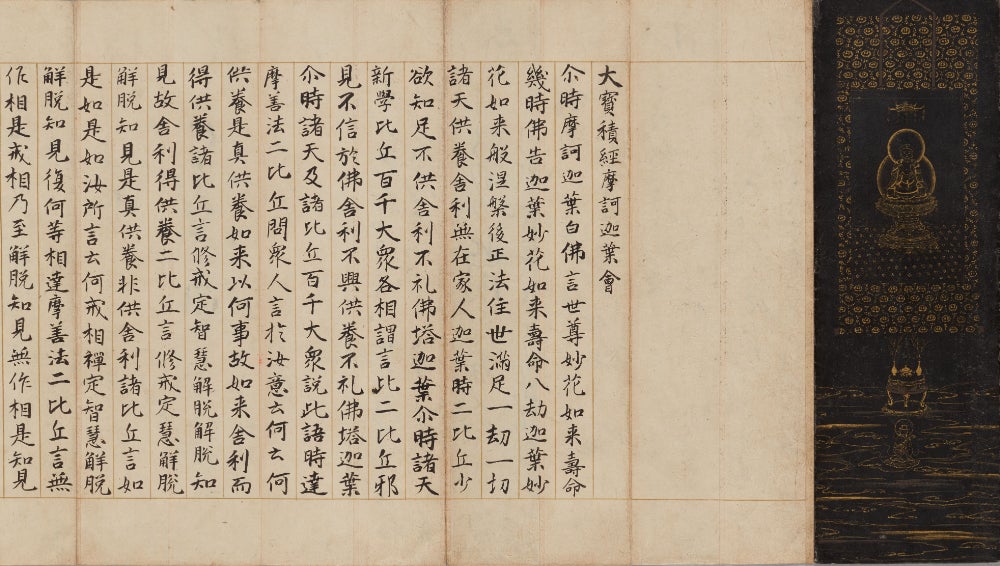 大寶積經摩訶迦葉會
尒時摩訶迦葉白佛言世尊妙花如来壽命
幾時佛告迦葉妙花如来壽命八劫迦葉妙
花如来般涅槃後正法住世滿足一劫一切
諸天供養舍利無在家人迦葉時二比丘少
欲知足不供舍利不礼佛塔迦葉尒時諸天
新學比丘百千大衆各相謂言此二比丘邪
見不信於佛舍利不興供養不礼佛塔迦葉
尒時諸天及諸比丘百千大衆説此語時達
摩善法二比丘問衆人言扵汝意云何云何
供養是真供養如来以何事故如来舍利而
得供養諸比丘言修戒定智慧解脱解脱知
見故舍利得供養二比丘言修戒定慧解脱
解脱知見是真供養非供舍利諸比丘言如
是如是如汝所言云何戒相禪定智慧解脱
解脱知見復何等相達摩善法二比丘言無
作相是戒相乃至解脱知見無作相是知見